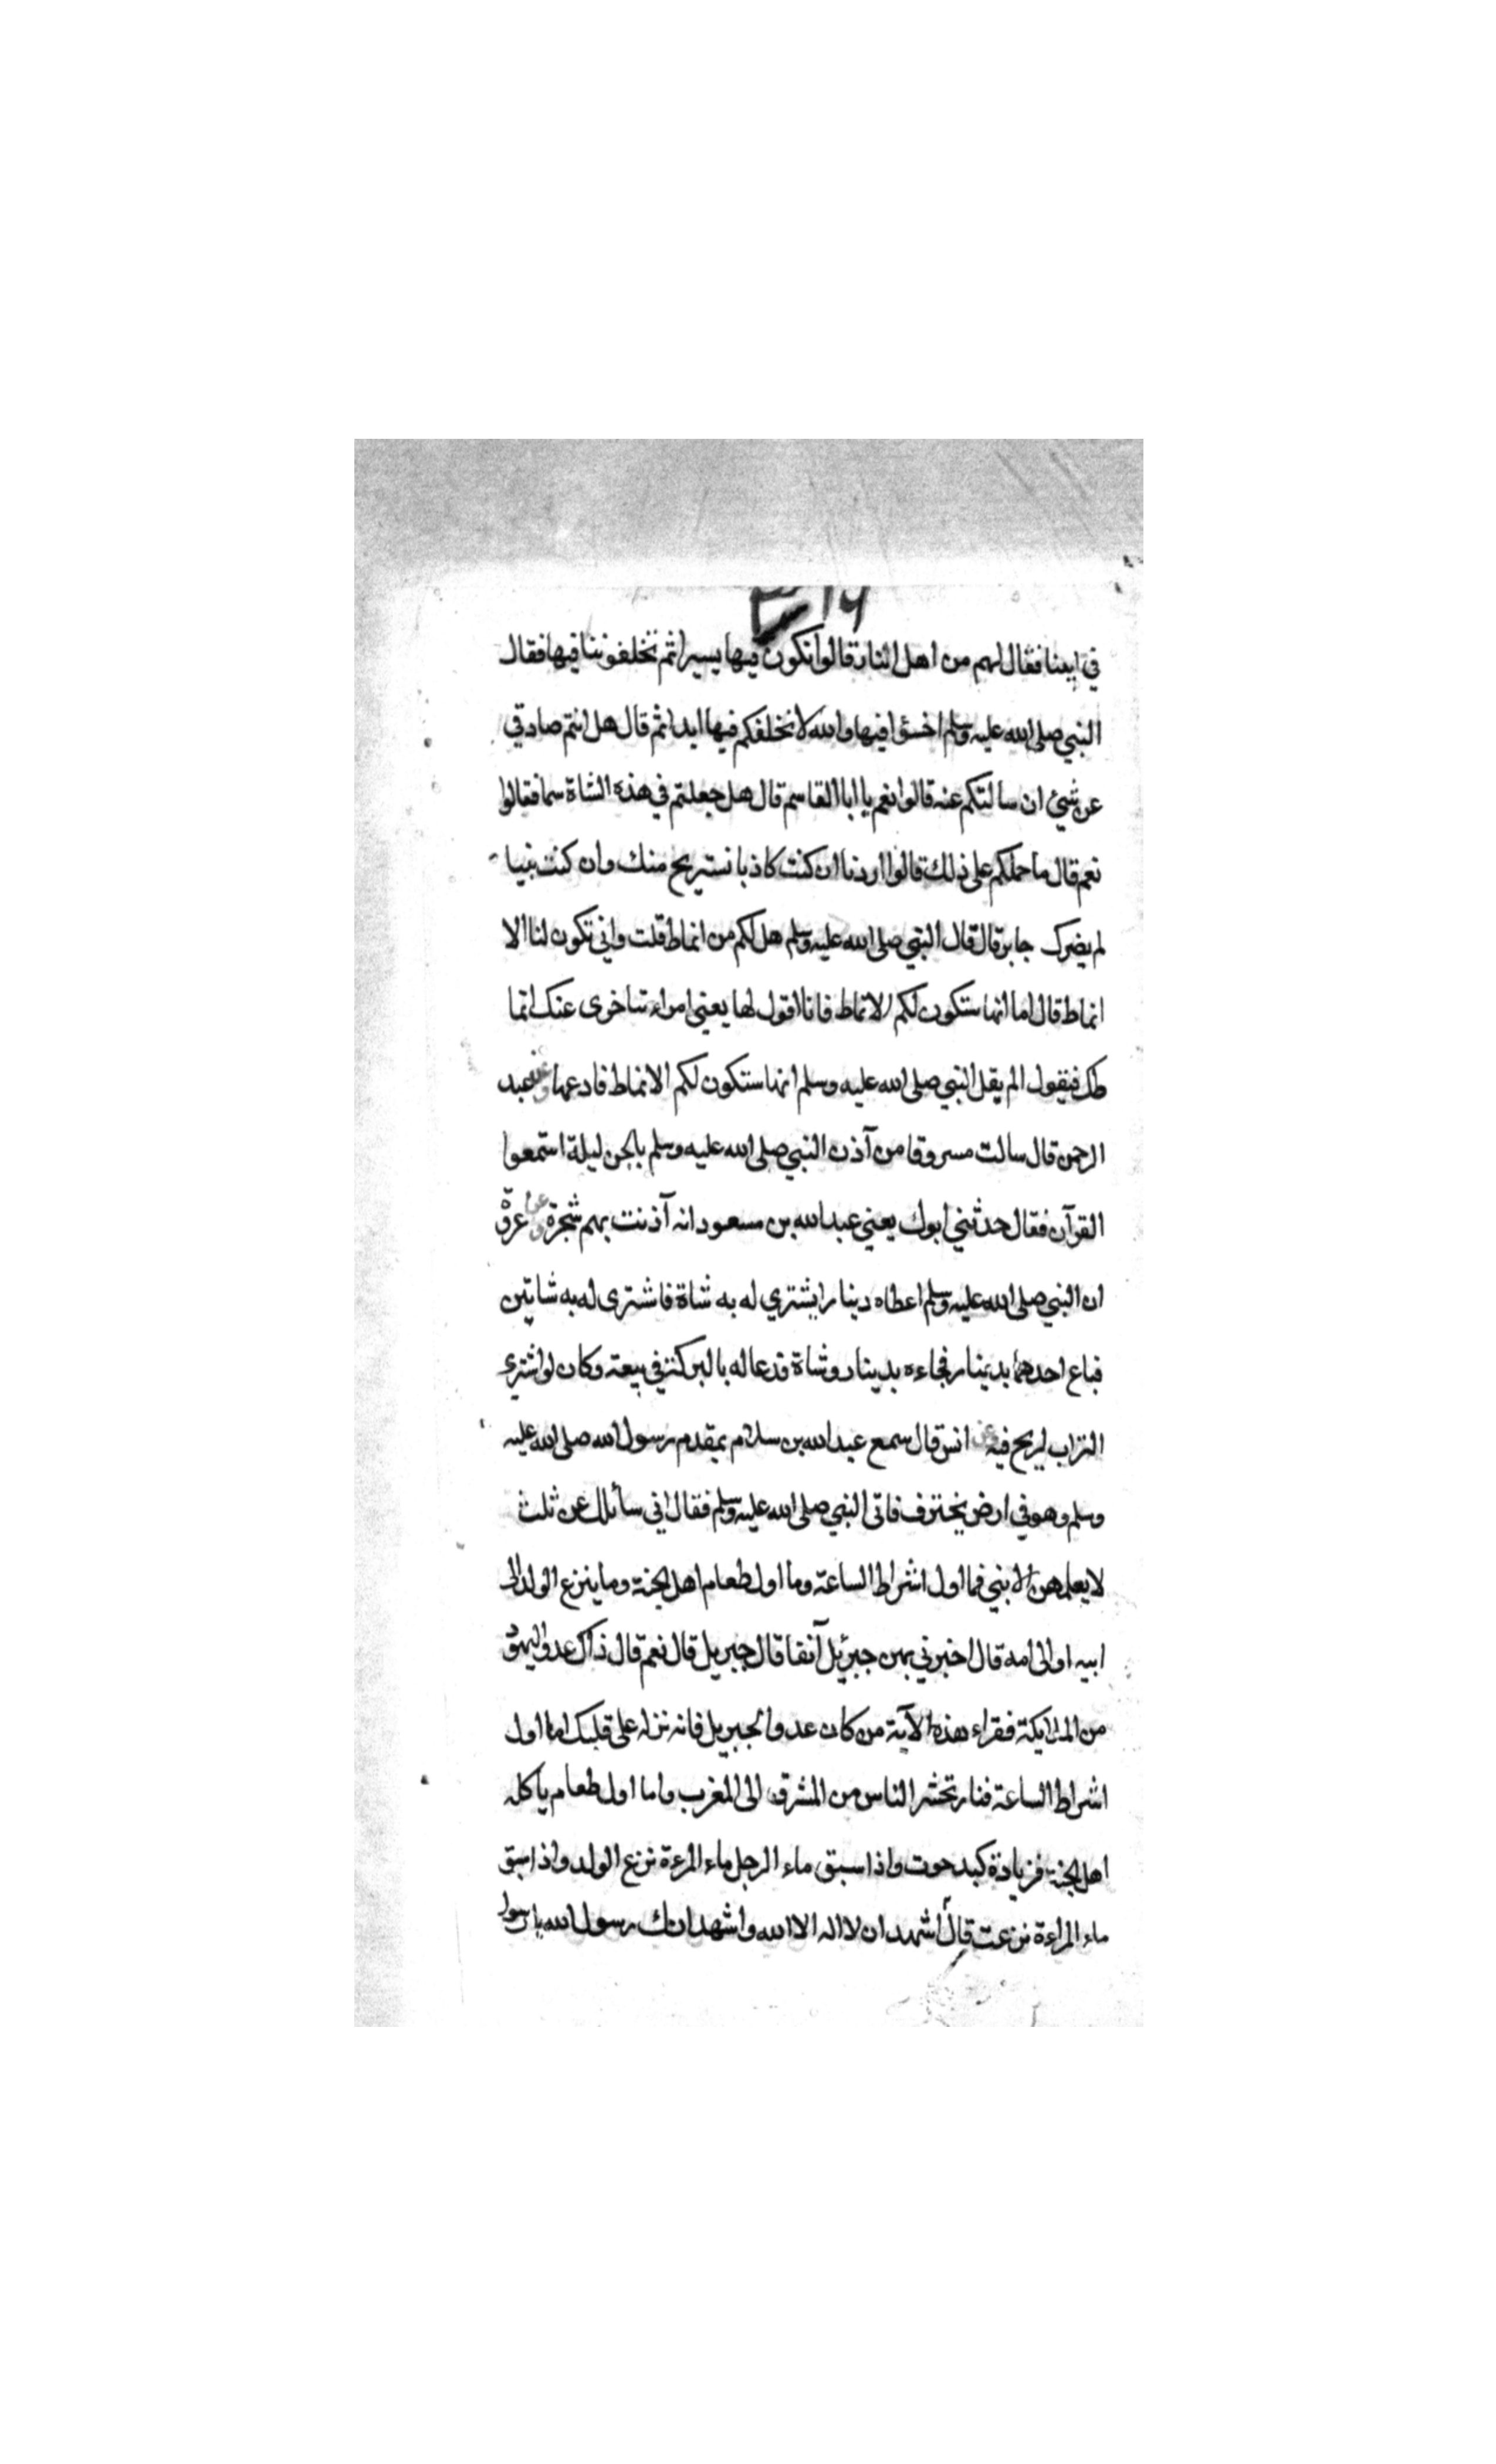 ١٦
في ابينا فقال لهم من اهل النار قالوا نكون فيها يسيرا ثم تخلفوننا فيها فقال
النبي صلى الله عليه وسلم اخسؤا فيها والله لا نخلفكم فيها ابدا ثم قال هل انتم صادقي
عن شيئ ان سالتكم عنه قالوا نعم يا ابا القاسم قال هل جعلتم في هذه الشاة سما فقالوا
نعم قال ما حملكم على ذلك قالوا اردنا ان كنت كاذبا نستريح منك وان كنت نبيا
لم يضرك جابر قال قال النبي صلى الله عليه وسلم هل لكم من انماط قلت واني تكون لنا الا
انماط قال اما انها ستكون لكم الانماط فانا اقول لها يعني امراءته اخرى عنك انما
طك فيقول الم يقل النبي صلى الله عليه وسلم انها ستكون لكم الانماط فادعها وعن عبد
الرحمن قال سالت مسروقا من آذن النبي صلى الله عليه وسلم بالجن ليلة استمعوا
القرآن فقال حدثني ابوك يعني عبد الله بن مسعود انه آذنت بهم شجرة وعن عروة
ان النبي صلى الله عليه وسلم اعطاه دينارا يشتري له به شاة فاشترى له به شاتين
فباع احدهما بدينار فجاءه بدينار وشاة فدعا له بالبركة في بيعته وكان لو اشترى
التراب لربح فيه وعن انس قال سمع عبد الله بن سلام بمقدم رسول الله صلى الله عليه
وسلم وهو في ارض يخترف فاتى النبي صلى الله عليه وسلم فقال اني سائلك عن ثلث
لا يعلمهن الا نبي فما اول اشراط الساعة وما اول طعام اهل الجنة وما ينزع الولد الى
ابيه او الى امه قال اخبرني بهن جبرئيل آنفا قال جبريل قال نعم قال ذاك عدو اليهود
من الملايكة فقراء هذه الآية من كان عدوا لجبريل فانه نزله على قلبك اما اول
اشراط الساعة فنار تحشر الناس من المشرق الى المغرب واما اول طعام ياكله
اهل الجنة فزيادة كبد حوت واذا سبق ماء الرجل ماء المرءة نزع الولد واذا سبق
ماء المراءة نزعت قال اشهد ان لا اله الا الله واشهد انك رسول الله يا رسول